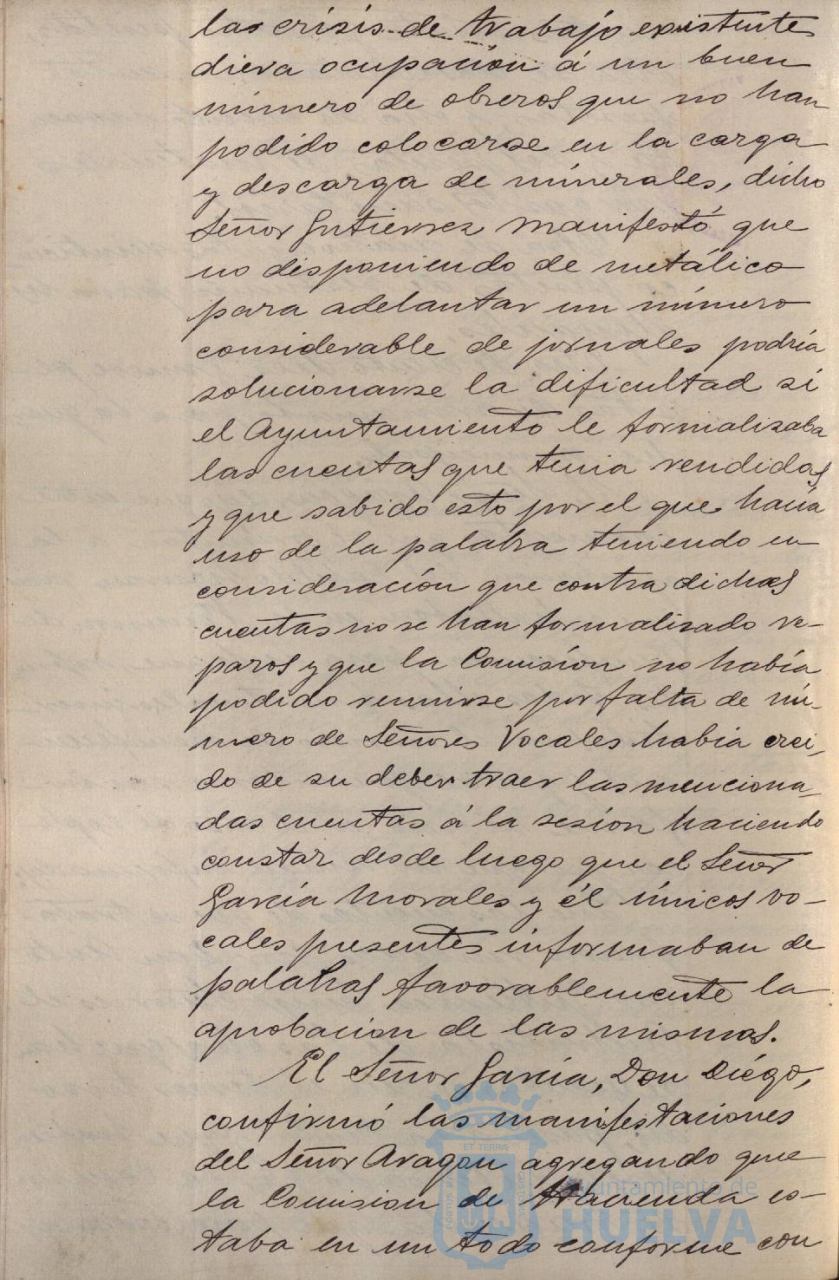 las crísis de trabajo existente
diera ocupación á un buen
número de obreros que no han
podido colocarse en la carga
y descarga de minerales, dicho
Señor Gutierrez manifestó que
no disponiendo de metálico
para adelantar un número
considerable de jornales podría
solucionarse la dificultad si
el Ayuntamiento le formalizaba
las cuentas que tenia rendidas
y que sabido esto por el que hacía
uso de la palabra teniendo en
consideración que contra dichas
cuentas no se han formalizado re-
paros y que la Comisión no había
podido reunirse por falta de nú-
mero de Señores Vocales habia crei-
do de su deber traer las menciona-
das cuentas á la sesión haciendo
constar desde luego que el Señor
García Morales y él únicos vo-
cales presentes informaban de
palabras favorablemente la
aprobacion de las mismas.
El Señor García, Don Diégo,
confirmó las manifestaciones
del Señor Aragon agregando que
la Comision de Hacienda es-
taba en un todo conforme con
Ayuntamiento de
HUELVA